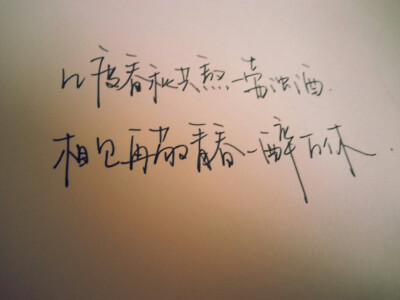 几度春秋共熬一壶浊酒.
相见再敬青春一醉方休.